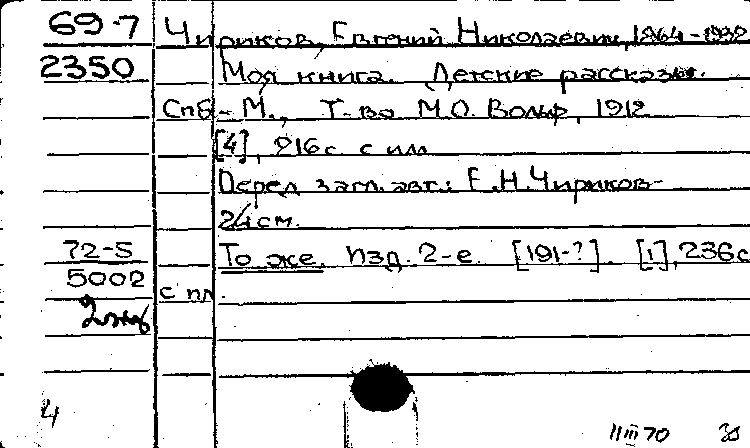 69-7 Чириков, Евгений Николаевич, 1864-1932
2350 Моя книга. Детские рассказы.
Спб.-М., Т-во М.О. Вольф, 1912
[4], 216 с. с илл.
Перед загл. авт.: Е.Н. Чириков.
24 см.
72-5 То же. Изд. 2-е. [191-?]. [1], 236 с.
5002 с ил.
2 экз
4
11 III 70